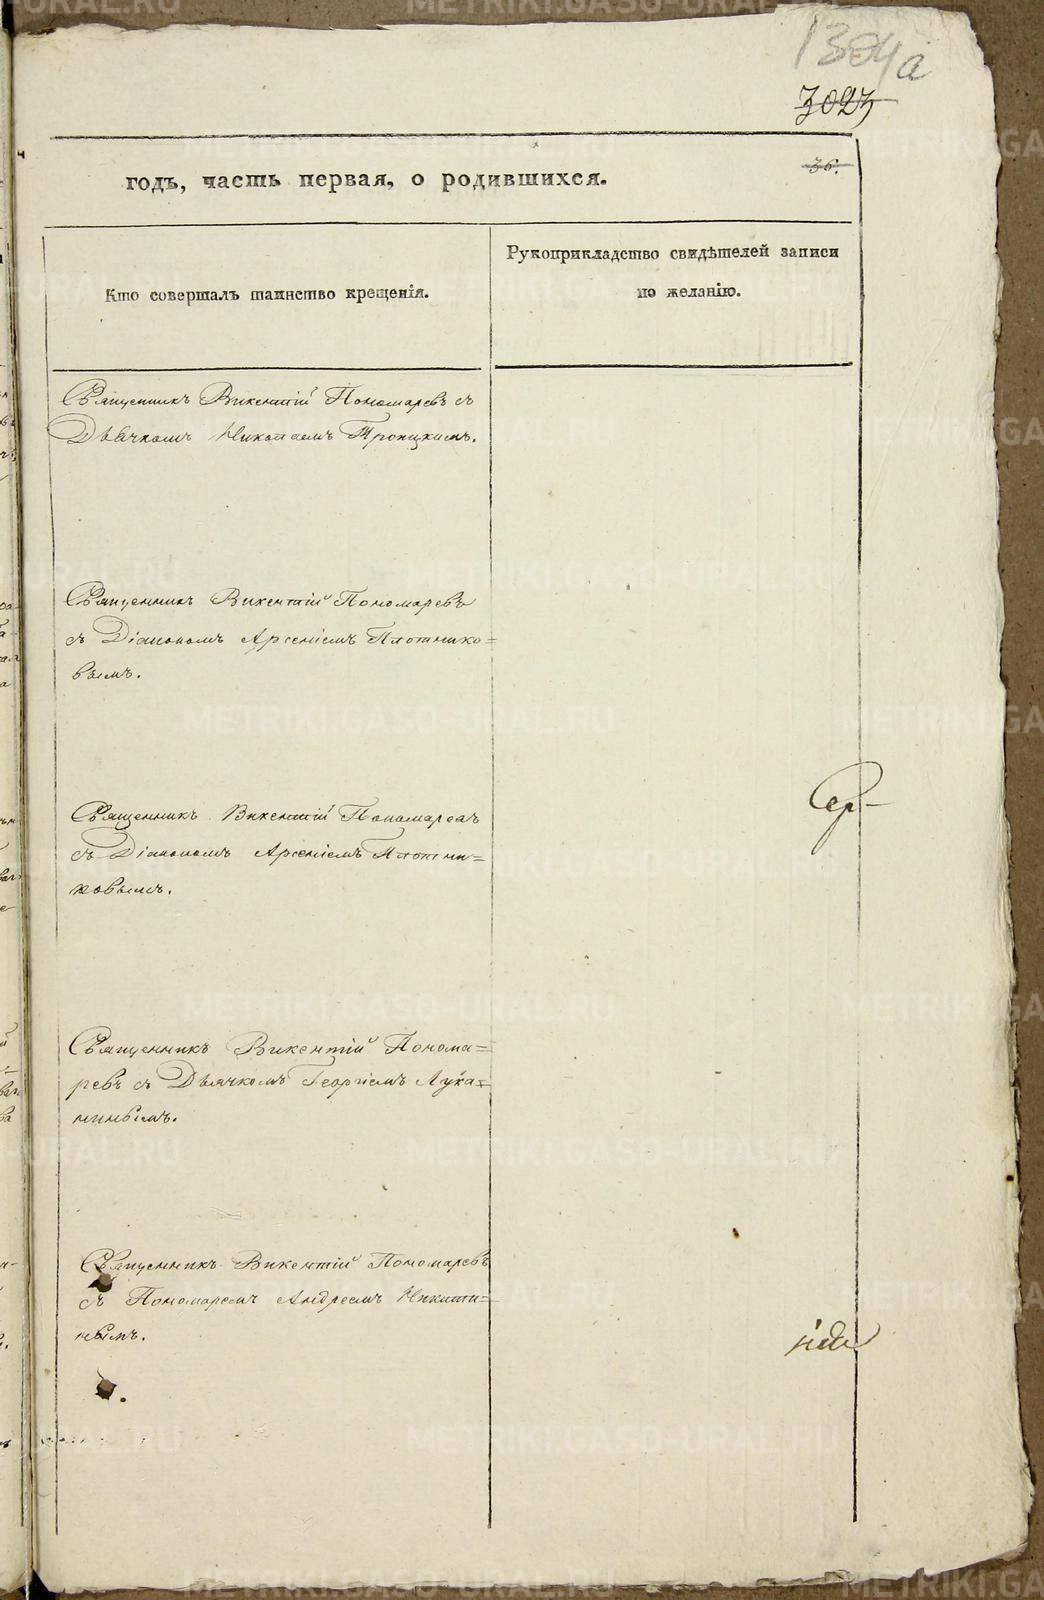 1304а
3023
36.
годъ, часть первая, о родившихся.
Кто совершалъ таинство крещенія.
Рукоприкладство свидѣтелей записи
по желанію.
Священникъ Викентій Пономаревъ съ
Дьячкомъ Николаемъ Троицкимъ.
Священникъ Викентій Пономаревъ
съ Діакономъ Арсеніемъ Плотнико=
вымъ.
Священникъ Викентій Пономаревъ
съ Діакономъ Арсеніемъ Плотни=
ковымъ.
Священникъ Викентій Понома=
ревъ съ Дьячкомъ Георгіемъ Лука=
нинымъ.
Священникъ Викентій Пономаревъ
съ Пономаремъ Андреемъ Никити=
нымъ.
METRIKI.GASO-URAL.RU